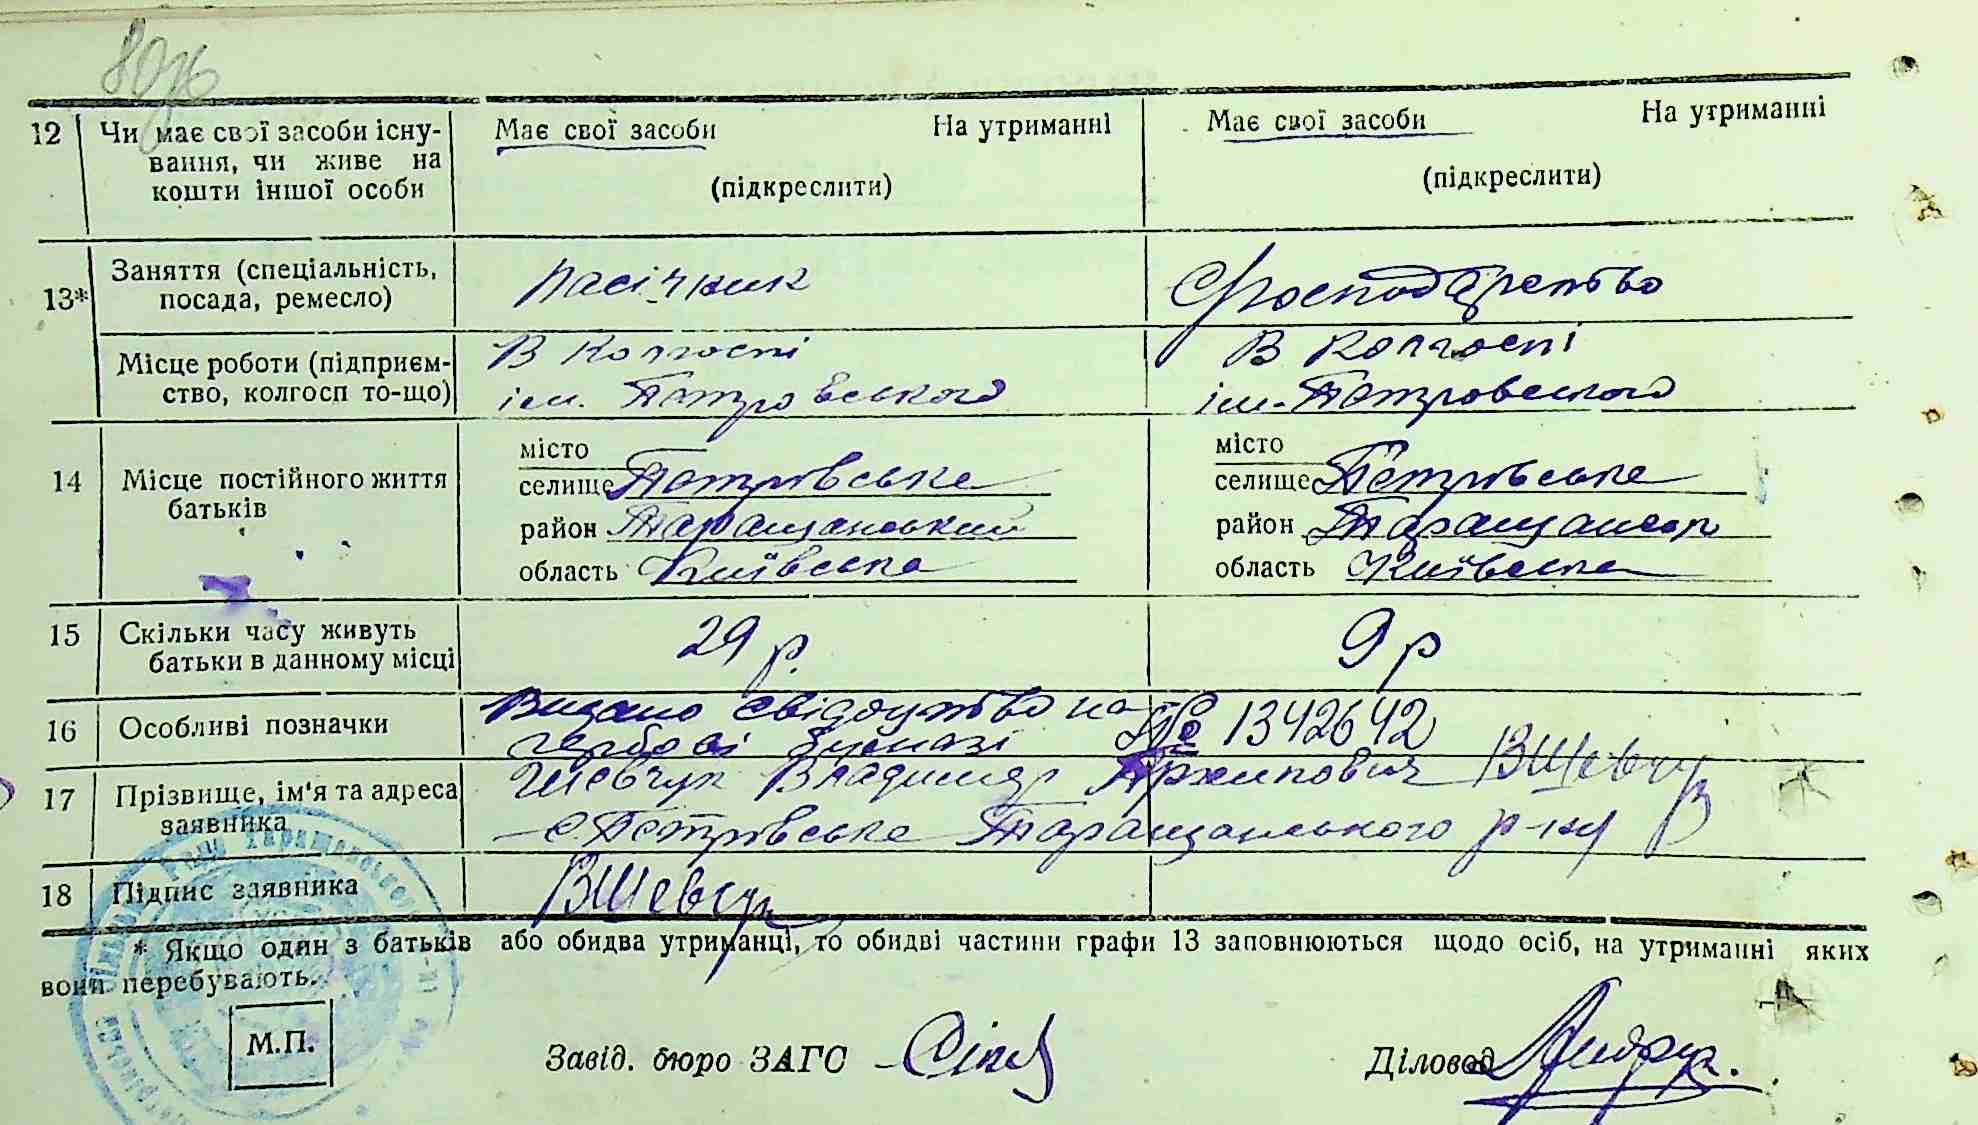 12 Чи має свої засоби існу- Має свої засоби На утриманні Має свої засоби На утриманні
вання, чи живе на
кошти іншої особи (підкреслити) (підкреслити)
13* Заняття (спеціальність, посада, ремесло) Пасічник Господарство
Місце роботи (підприєм- В Колгоспі В Колгоспі
ство, колгосп то-що) ім. Петровського ім. Петровського
місто місто
14 Місце постійного життя селище Петрівське селище Петрівське
батьків район Таращанський район Таращанськ
область Київська область Київська
15 Скільки часу живуть 29 р. 9 р
батьки в данному місці
16 Особливі позначки Видано свідоцтво на № 1342642
гербові бумазі
17 Прізвище, ім'я та адреса Шевчук Владимир Архипович ВШевчу
заявника с Петрівське Таращанського р-ну
18 Підпис заявника ВШевчук
* Якщо один з батьків або обидва утриманці, то обидві частини графи 13 заповнюються щодо осіб, на утриманні яких
вони перебувають.
М.П. Завід. бюро ЗАГС Діловод